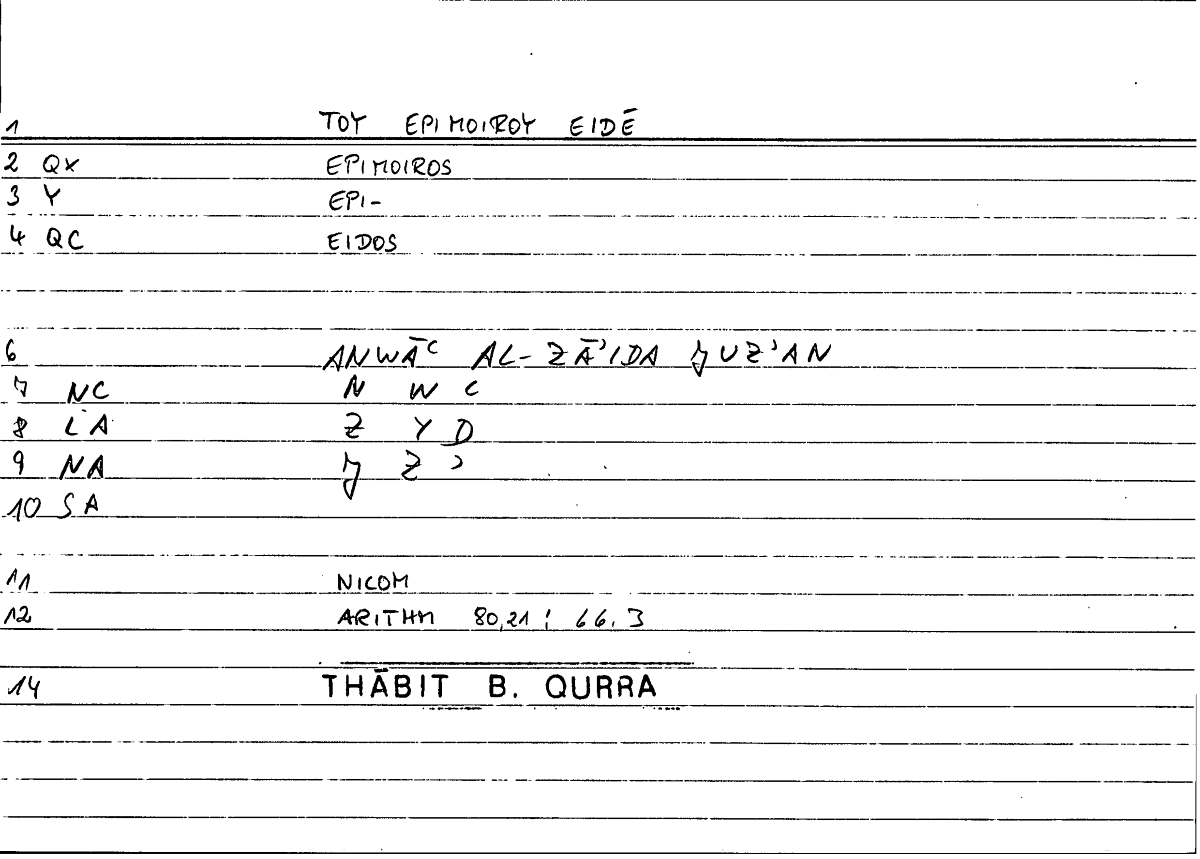 1 TOY EPIMOIROY EIDĒ
2 QX EPIMOIROS
3 Y EPI-
4 QC EIDOS
6 ANWĀC AL-ZĀ'IDA JUZ'AN
7 NC N W C
8 LA Z Y D
9 NA J Z '
10 SA
11 NICOM
12 ARITHM 80,21 ; 66.3
14 THĀBIT B. QURRA